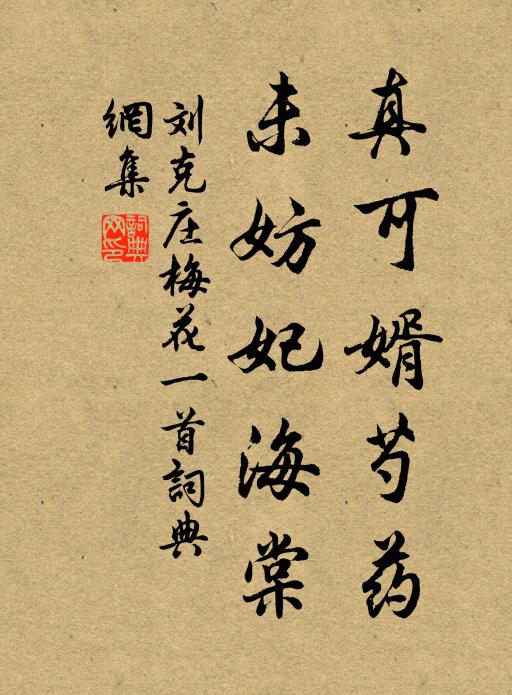 真可婿芍药
未妨妃海棠
刘克庄梅花一首詞典
網集
詞典
网印